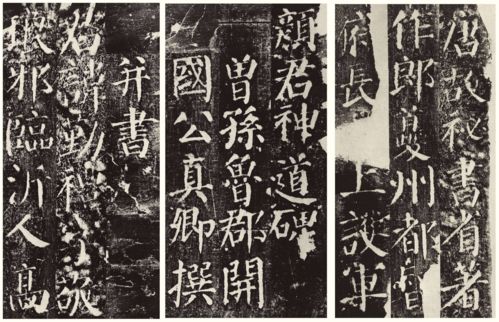 唐故秘書省著
作郎夔州都督
府長 上護軍
顏君神道碑
曾孫魯郡開
國公真卿撰
并書
君諱勤禮字敬
琅邪臨沂人高